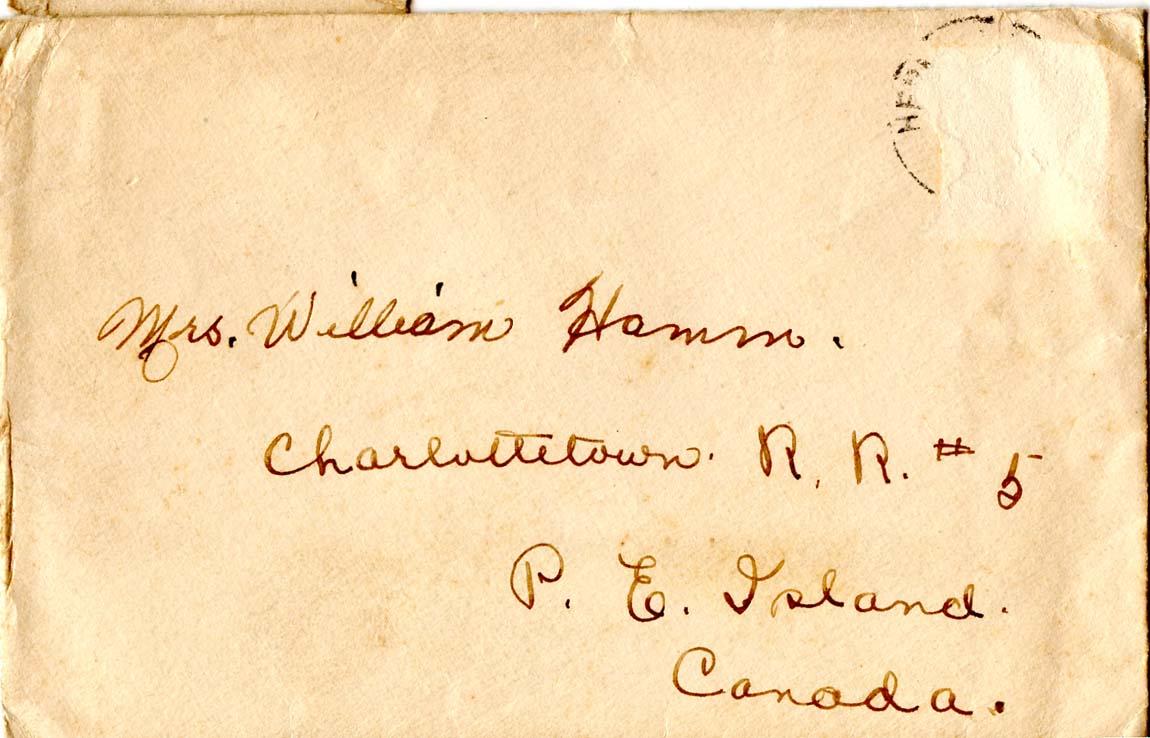 Mrs. William Hamm.
Charlottetown. R. R. # 5
P. E. Island.
Canada.